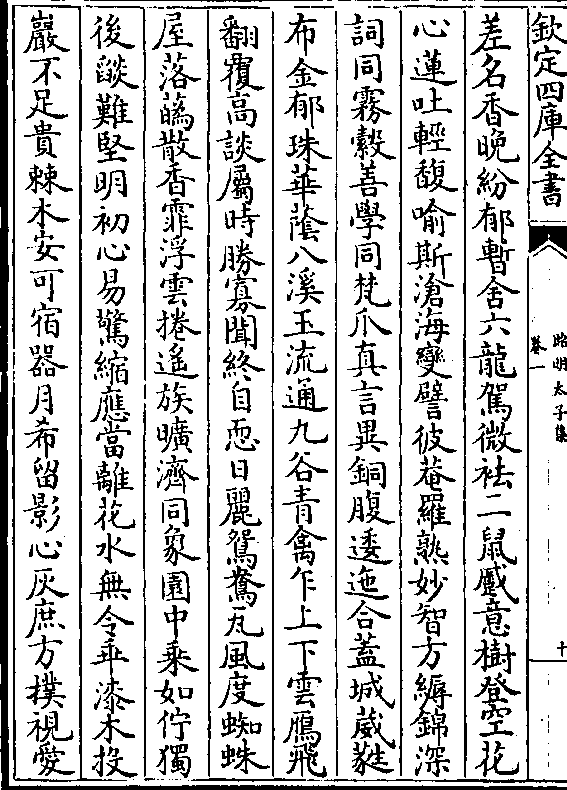 欽定四庫全書
昭明太子集
卷一
十
差名香晚紛郁暫舍六龍駕微袪二鼠蹙意樹登空花
心蓮吐輕馥喻斯滄海變譬彼菴羅熟妙智方縟錦深
詞同霧縠善學同梵爪真言異銅腹逶迤合蓋城葳蕤
布金郁珠華蔭八溪玉流通九谷青禽乍上下雲鴈飛
翻覆高談屬時勝寡聞終自恧日麗鴛鴦瓦風度蜘蛛
屋落蘤散香霏浮雲捲遙族曠濟同象園中乘如佇獨
後燄難堅明初心易驚縮應當離花水無令乖漆木投
巖不足貴棘木安可宿器月希留影心灰庶方撲視愛